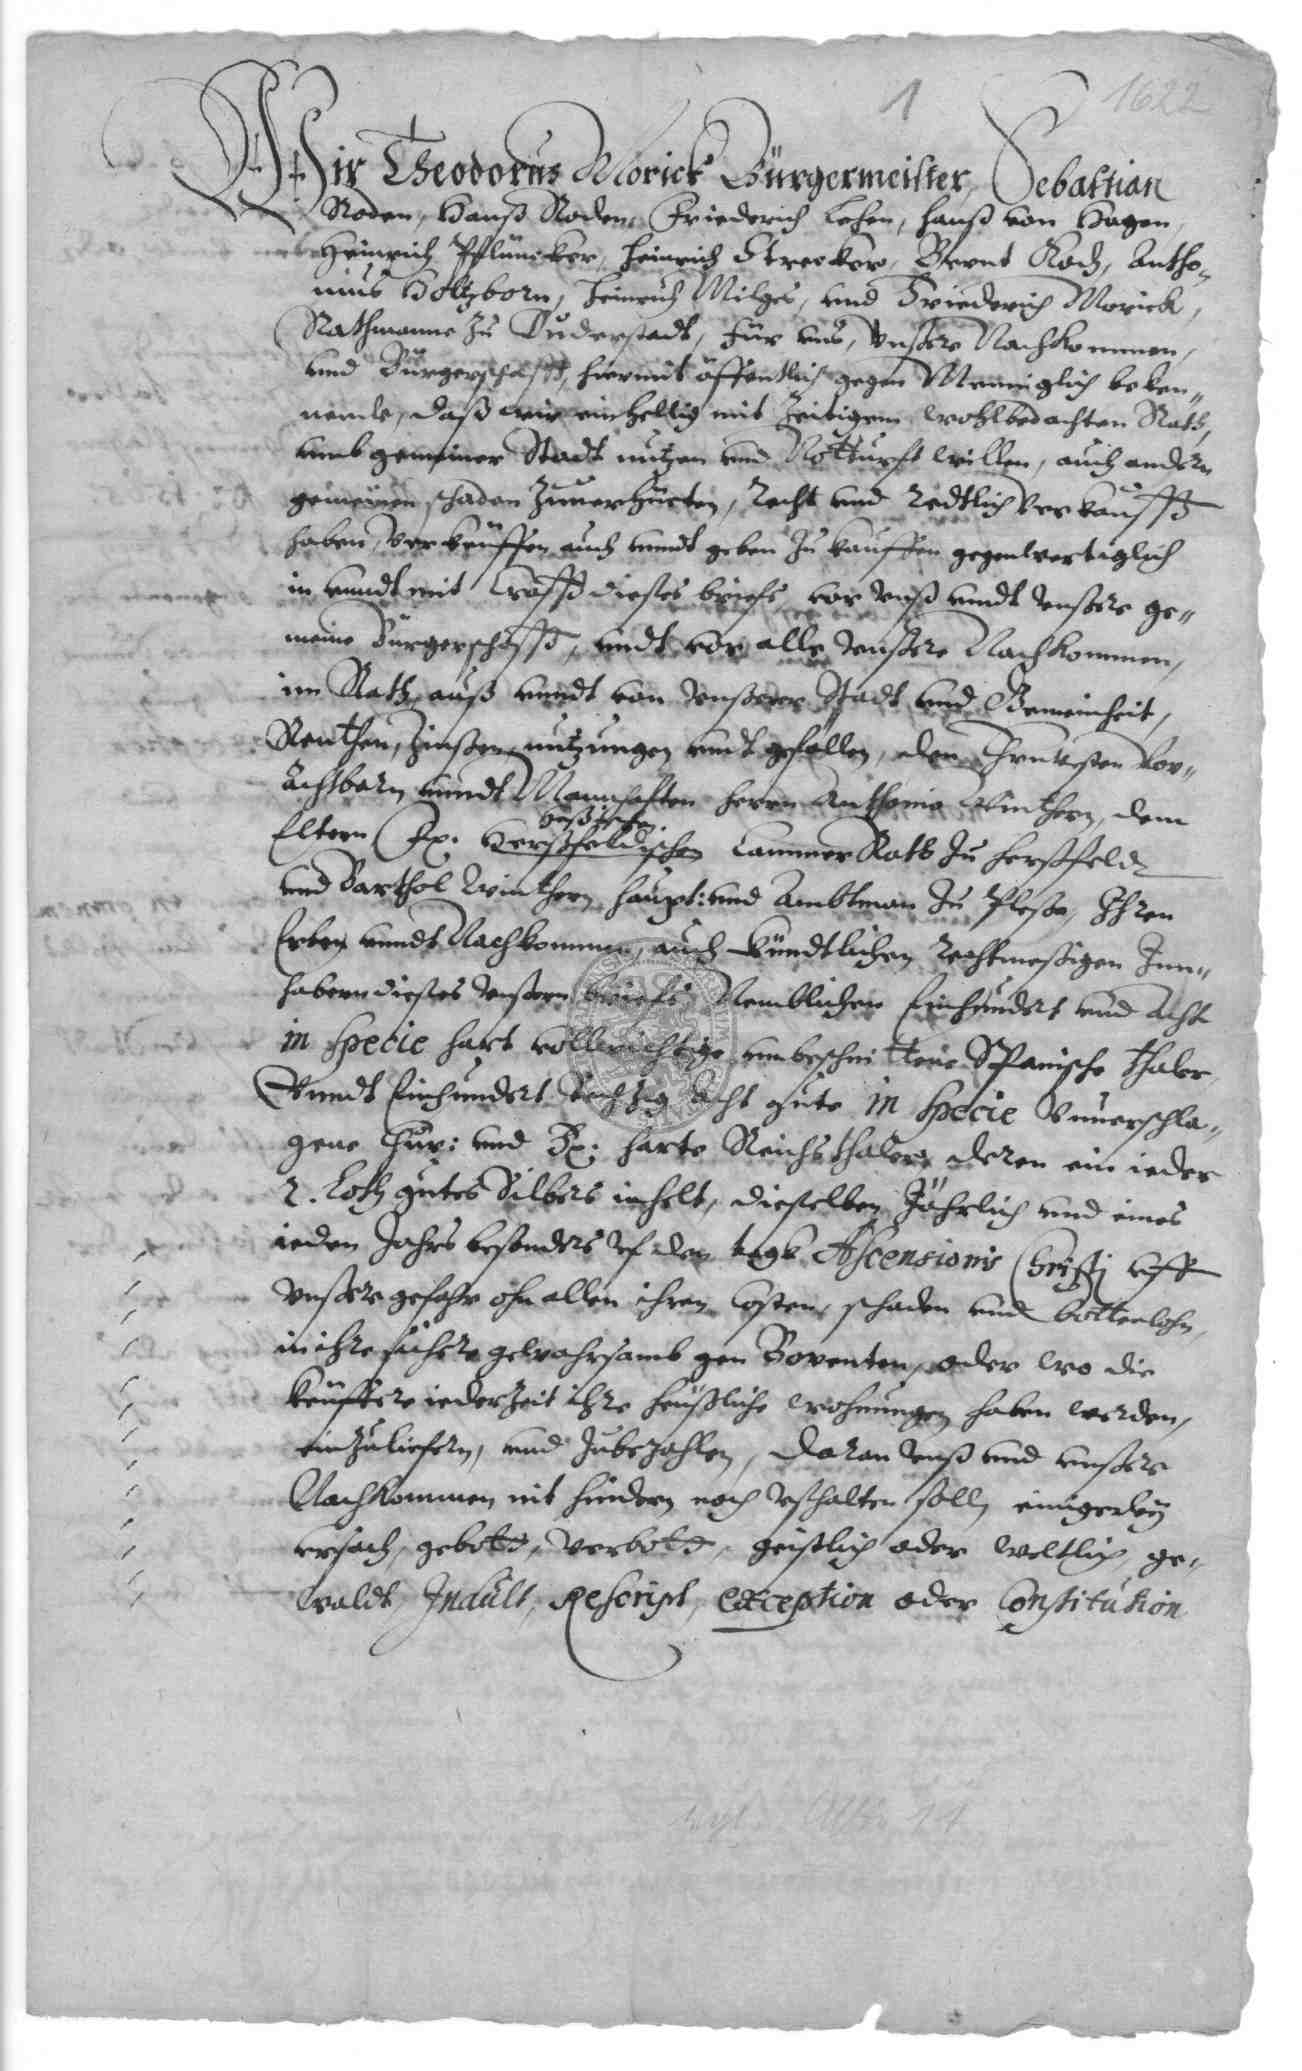 1
1622
Wir Theodorus Morick Bürgermeister, Sebastian
Roden, Hanß Roden, Friederich Lesen, Hanß von Hagen,
Heinrich Pflüncker, Heinrich Strecker, Bernt Koch, Antho-
nius Höltzborn, Heinrich Milges, und Friederich Morick,
Rathmanne zu Duderstadt, für uns, Unßere Nachkommen,
und Bürgerschafft, hiermit öffentlich gegen Menniglich beken-
nende, daß wir einhellig mit Zeitigem wohlbedachten Rath,
umb gemeiner Stadt nutzen und Notturft willen, auch andern
gemeinen schaden Zuuerhüeten, Recht und Redtlich Verkaufft
haben, Verkeuffen auch unndt geben Zu kauffen gegenwertiglich
in unndt mit Crafft dieses brieffs, vor Unß undt Unßere ge-
meine Bürgerschafft, undt vor alle Unßere Nachkommen,
im Rath, auß unndt von Unßerer Stadt und Gemeinheit,
Renthen, Zinßen, nutzungen undt gefällen, den Ehrnvesten Vor-
Achtbarn unndt Mannhaften Herrn Anthonio Winthern, dem
Heßischen
Eltern Fr. Herßfeldischen Cammer Rath Zu Herßfeldt
und Barthol Winthern Haupt: und Ambtman Zu Pleße, Ihren
Erben unndt Nachkommen, auch Kündtlichen rechtmeßigen Inn-
habern dieses Unßern brieffs, Nemblichen Einhundert und Acht
in specie hart vollwichtige unbeschnittene Spanische thaler,
Unndt Einhundert Sechzig Acht gute in specie Unverschla-
gene Chur: und Fr: harte Reichsthaler, deren ein ieder
2. Loth gutes Silbers inhelt, dieselben Jährlich und eines
ieden Jahrs besonders Uf den tagk Ascensionis Christi uff
Unßere gefahr ohn allen ihren Costen, schaden und bottenlohn,
in ihre sichere gewahrsamb gen Bovenden, oder wo die
keuffere iederzeit ihre heußliche wohnungen haben werden,
einzuliefern, und Zubezahlen, Daran Unß und unßere
Nachkommen nit hindern noch Ufhalten soll, einigerley
ursach, gebott, Verbott, geistlich oder weltlich, ge-
waldt, Indult, Rescript, exception oder Constitution